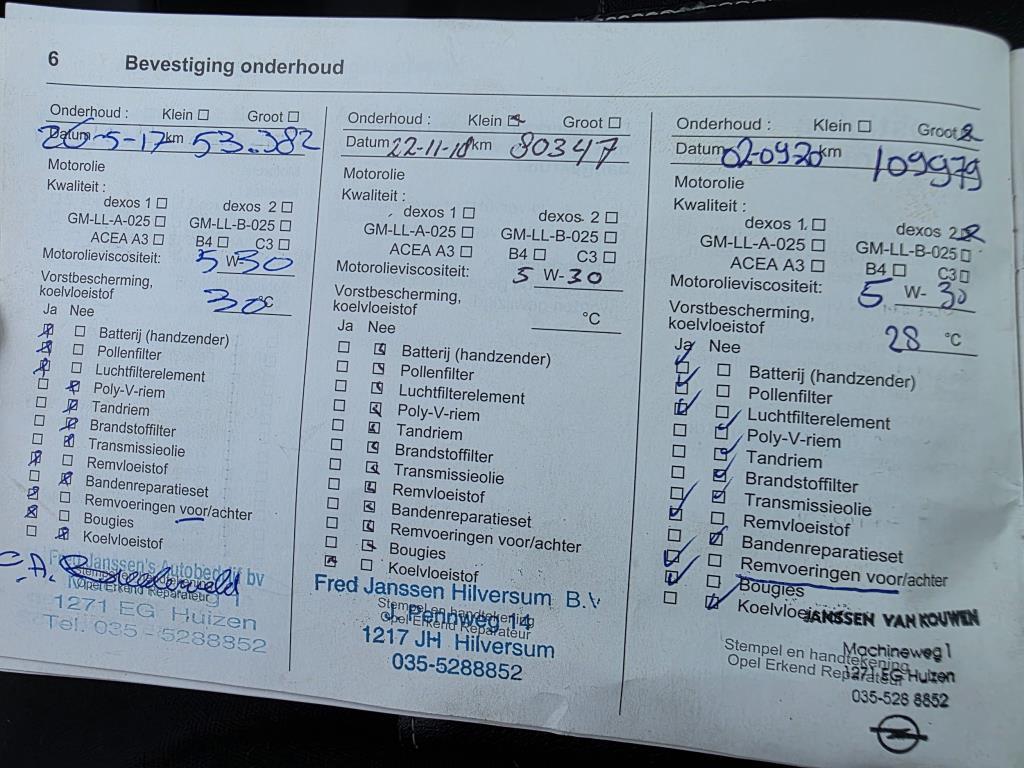 6 Bevestiging onderhoud
Onderhoud : Klein ☐ Groot ☐
Datum 26-5-17 km 53.382
Motorolie
Kwaliteit :
dexos 1 ☐ dexos 2 ☐
GM-LL-A-025 ☐ GM-LL-B-025 ☐
ACEA A3 ☐ B4 ☐ C3 ☐
Motorolieviscositeit: 5 W-30
Vorstbescherming,
koelvloeistof 30 °C
Ja Nee
☒ ☐ Batterij (handzender)
☒ ☐ Pollenfilter
☒ ☐ Luchtfilterelement
☐ ☒ Poly-V-riem
☐ ☒ Tandriem
☐ ☒ Brandstoffilter
☐ ☒ Transmissieolie
☒ ☐ Remvloeistof
☐ ☒ Bandenreparatieset
☒ ☐ Remvoeringen voor/achter
☒ ☐ Bougies
☐ ☒ Koelvloeistof
Fred Janssen's Autobedrijf bv
Stempel en handtekening
Opel Erkend Reparateur
1271 EG Huizen
Tel. 035 - 5288852
Onderhoud : Klein ☒ Groot ☐
Datum 22-11-18 km 80347
Motorolie
Kwaliteit :
dexos 1 ☐ dexos 2 ☐
GM-LL-A-025 ☐ GM-LL-B-025 ☐
ACEA A3 ☐ B4 ☐ C3 ☐
Motorolieviscositeit: 5 W-30
Vorstbescherming,
koelvloeistof °C
Ja Nee
☐ ☒ Batterij (handzender)
☐ ☒ Pollenfilter
☐ ☒ Luchtfilterelement
☐ ☒ Poly-V-riem
☐ ☒ Tandriem
☐ ☒ Brandstoffilter
☐ ☒ Transmissieolie
☐ ☒ Remvloeistof
☐ ☒ Bandenreparatieset
☐ ☒ Remvoeringen voor/achter
☐ ☒ Bougies
☒ ☐ Koelvloeistof
Fred Janssen Hilversum B.V
Stempel en handtekening
J. Pennweg 14
Opel Erkend Reparateur
1217 JH Hilversum
035-5288852
Onderhoud : Klein ☐ Groot ☒
Datum 02-0920 km 109979
Motorolie
Kwaliteit :
dexos 1 ☐ dexos 2 ☒
GM-LL-A-025 ☐ GM-LL-B-025 ☐
ACEA A3 ☐ B4 ☐ C3 ☐
Motorolieviscositeit: 5 W- 30
Vorstbescherming,
koelvloeistof 28 °C
Ja Nee
☑ ☐ Batterij (handzender)
☑ ☐ Pollenfilter
☑ ☐ Luchtfilterelement
☐ ☑ Poly-V-riem
☐ ☑ Tandriem
☐ ☑ Brandstoffilter
☐ ☑ Transmissieolie
☑ ☐ Remvloeistof
☐ ☑ Bandenreparatieset
☑ ☐ Remvoeringen voor/achter
☑ ☐ Bougies
☐ ☑ Koelvloeistof
JANSSEN VAN KOUWEN
Machineweg 1
Stempel en handtekening
1271 EG Huizen
Opel Erkend Reparateur
035-528 8852